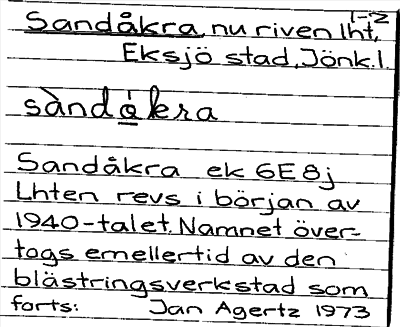 1-2
Sandåkra, nu riven lht,
Eksjö stad, Jönk.l.
sàndå̱kra
Sandåkra ek 6E8j
Lhten revs i början av
1940-talet. Namnet över-
togs emellertid av den
blästringsverkstad som
forts: Jan Agertz 1973